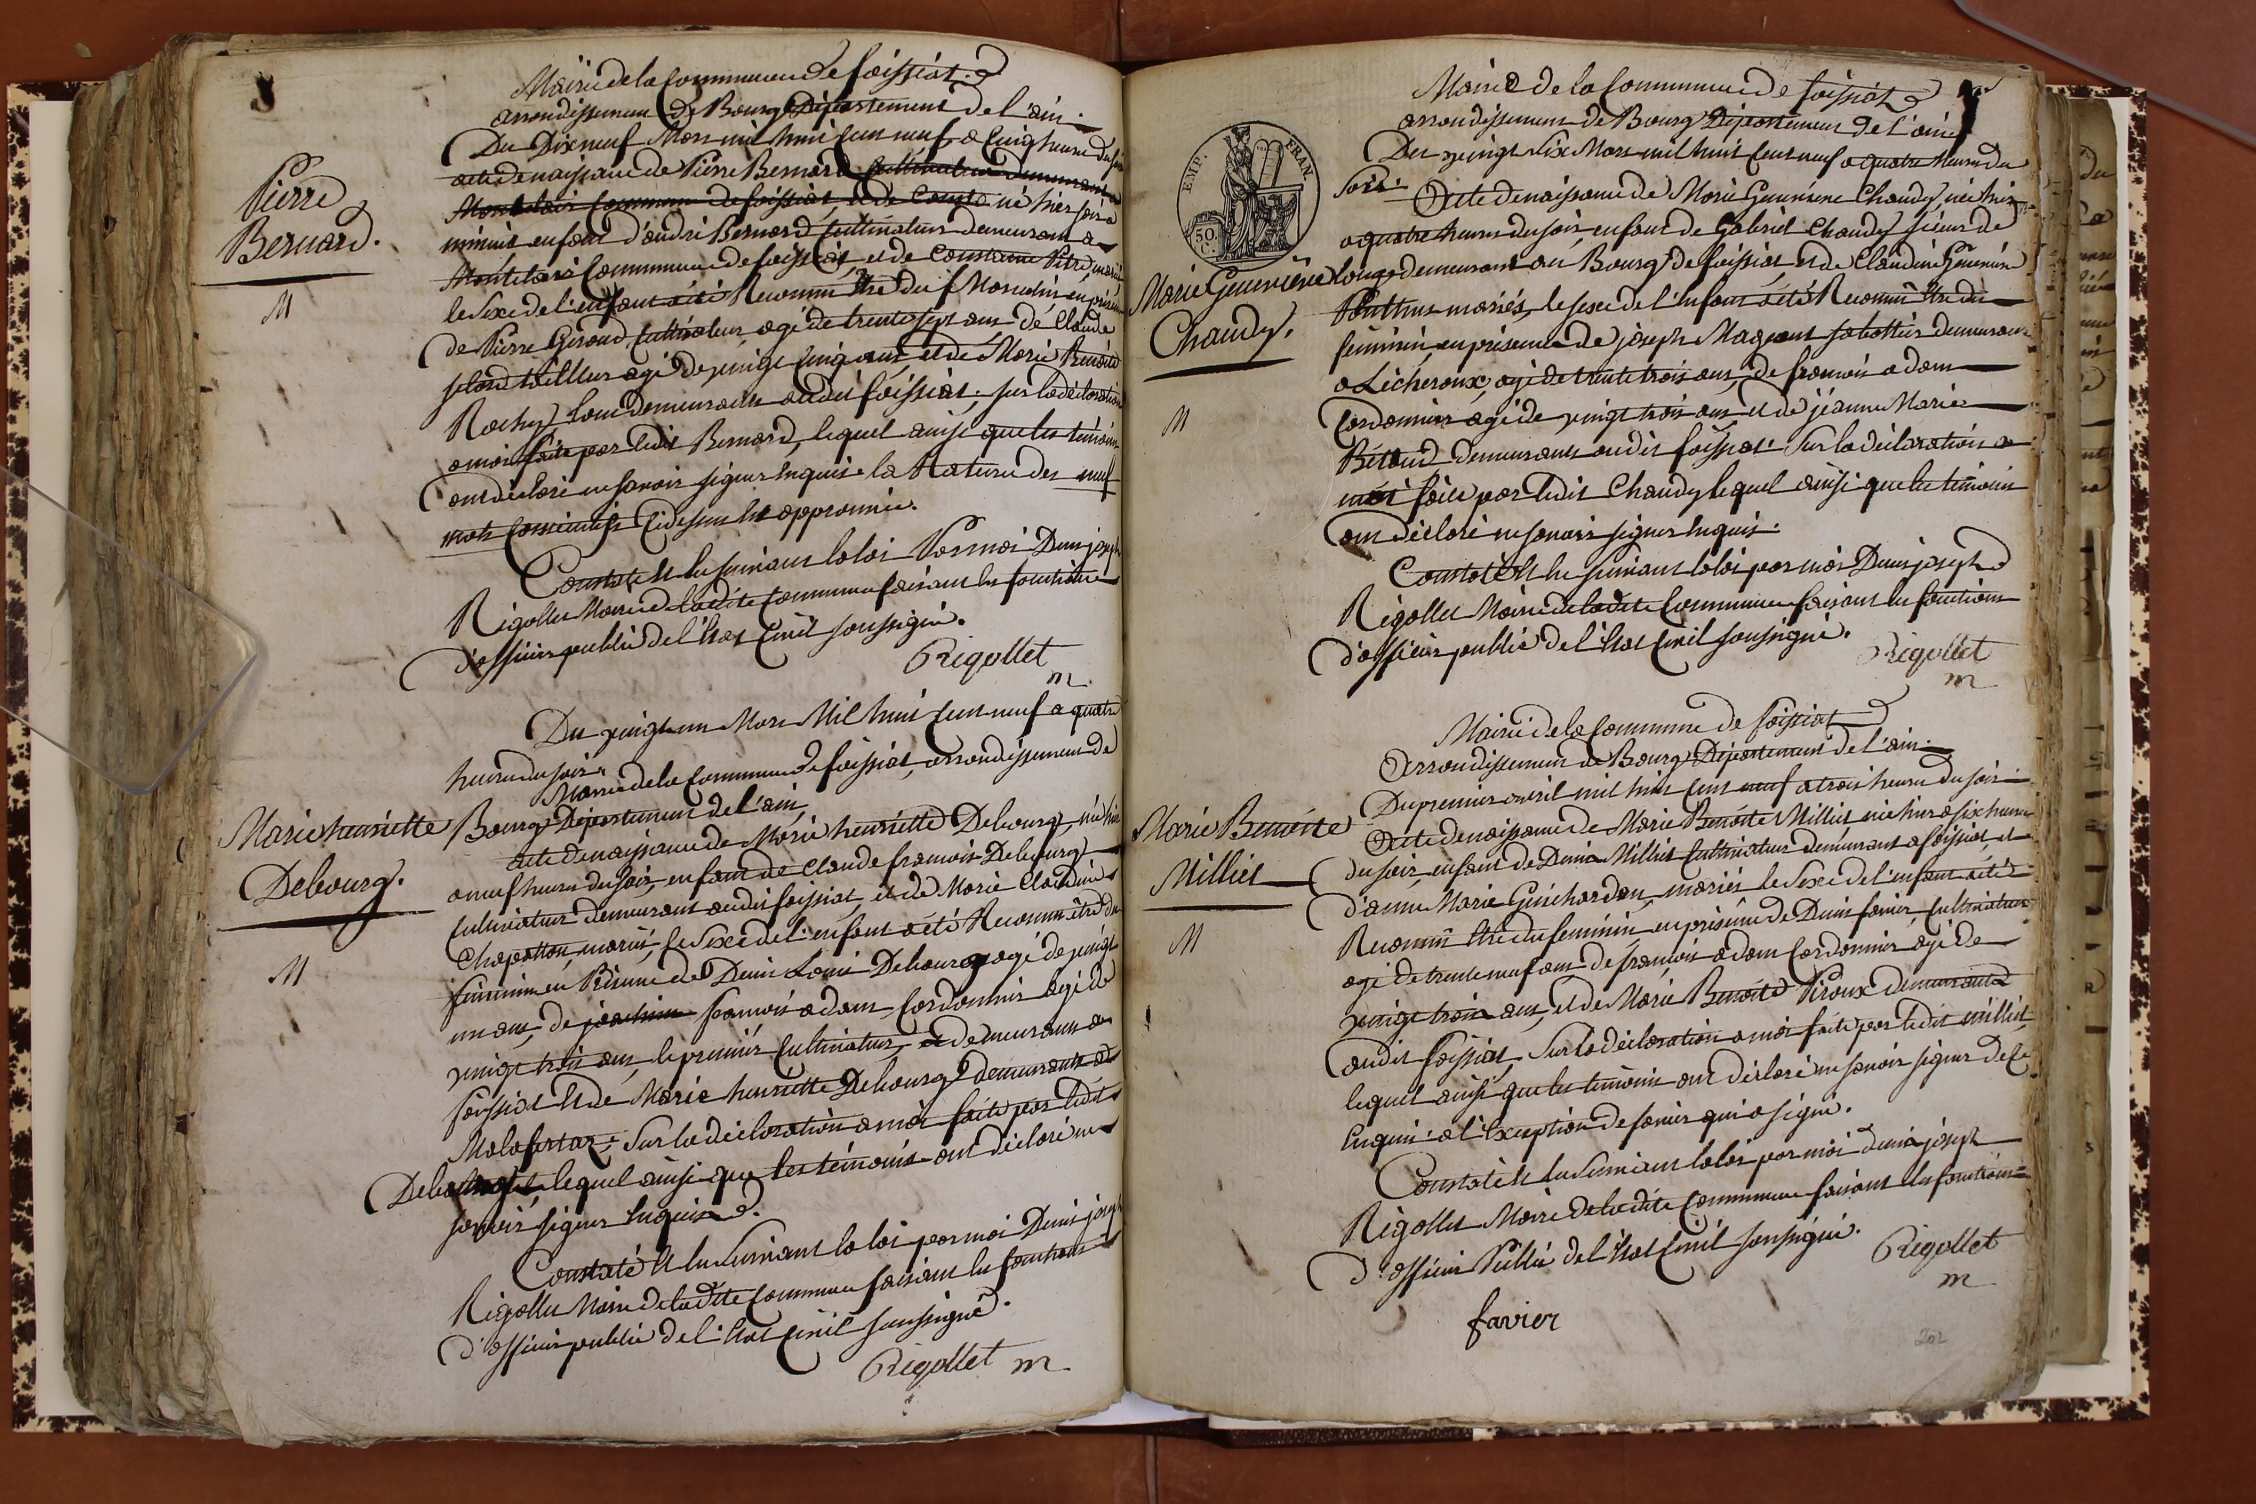 Mairie de la Commune de foissiat
arrondissement de Bourg Département de l'ain.
Du Dix neuf Mars mil huit cent neuf a cinq heures du soir
acte de naissance de Pierre Bernard cultivateur demeurant a
Montclair Commune de foissiat et de Const né hier soir a
minuit enfant d'andré Bernard cultivateur demeurant a
Commune de foissiat, et de Constance mariés
le sexe de l'enfant a été Reconnu être du f Masculin en présence
de Pierre Giraud, Cultivateur, agé de trente sept ans de Claude
tailleur agé de vingt cinq ans, et de Marie Benoite
Rochy tous demeurants audit foissiat. sur la déclaration
a moi faite par ledit Bernard, lequel ainsi que les témoins
ont déclaré ne savoir signer Enquis la Rature des neuf
mots ci dessus est approuvée.
Constaté et lu suivant la loi Par moi Denis joseph
Rigollet Maire de ladite Commune faisant les fonctions
d'officier public de l'état Civil soussigné.
Rigollet
m
Pierre
Bernard.
M
Du vingt un Mars Mil huit cent neuf a quatre
heures du soir.
Mairie de la Commune de foissiat, arrondissement de
Bourg Département de l'ain,
acte de naissance de Marie henriette Debourg, née hier
a neuf heures du soir, enfant de Claude francois Debourg
Cultivateur demeurant audit foissiat, et de Marie Claudine
Chapatton, mariés, le sexe de l'enfant a été Reconnu être du
féminin en Présence de Denis Louis Debourg agé de vingt
un ans, de joachim francois adam, Cordonnier agé de
vingt trois ans, le premier Cultivateur, et demeurants a
foissiat et de Marie henriette Debourg demeurante a
Malafertaz, Sur la déclaration a moi faite par ledit
Debourg lequel ainsi que les témoins ont déclaré ne
savoir signer Enquis.
Constaté et lu Suivant la loi par moi Denis joseph
Rigollet Maire de ladite Commune faisant les fonctions
d'officier public de l'état Civil soussigné.
Rigollet m
Marie henriette
Debourg.
M
Mairie de la Commune de foissiat
arrondissement de Bourg Département de l'ain
Du vingt six Mars mil huit Cent neuf a quatre heures du
soir.
Acte de naissance de Marie Genevieve Chaudy, née hier
a quatre heures du soir, enfant de Gabriel Chaudy sieur de
longs demeurant au Bourg de foissiat et de Claudine Genevieve
mariés, le sexe de l'enfant a été Reconnu être du
féminin, en présence de joseph Magnant sabottier demeurant
a Lecheroux, agé de trente trois ans, de francois adam
Cordonnier agé de vingt trois ans et de jeanne Marie
demeurants audit foissiat. Sur la déclaration a
moi faite par ledit Chaudy lequel ainsi que les témoins
ont déclaré ne savoir signer Enquis.
Constaté et lu suivant la loi par moi Denis joseph
Rigollet Maire de ladite Commune faisant les fonctions
d'officier public de l'état Civil soussigné.
Rigollet
m
EMP. FRAN.
50
Marie Genevieve
Chaudy.
M
Mairie de la Commune de foissiat
Arrondissement de Bourg Département de l'ain.
Du premier avril mil huit Cent neuf a trois heures du soir.
Acte de naissance de Marie Benoite Milliet née hier a six heures
du soir, enfant de Denis Milliet Cultivateur demeurant a foissiat, et
d'anne Marie Guichardon, mariés le Sexe de l'enfant a été
Reconnu être du féminin en présence de Denis favier, Cultivateur
agé de trente neuf ans de francois adam Cordonnier agé de
vingt trois ans, et de Marie Benoite Piroux demeurants
audit foissiat, Sur la déclaration a moi faite par ledit milliet
lequel ainsi que les témoins ont déclaré ne savoir signer de ce
Enquis a l'exception de favier qui a signé.
Constaté et lu Suivant la loi par moi denis joseph
Rigollet Maire de ladite Commune faisant les fonctions
d'officier Public de l'état Civil soussigné.
Rigollet
m
favier
Marie Benoite
Milliet
M
202